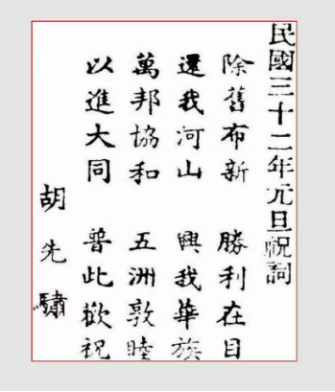 民國三十二年元旦祝詞
除舊布新　勝利在目
還我河山　興我華族
萬邦協和　五洲敦睦
以進大同　普此歡祝
胡先驌